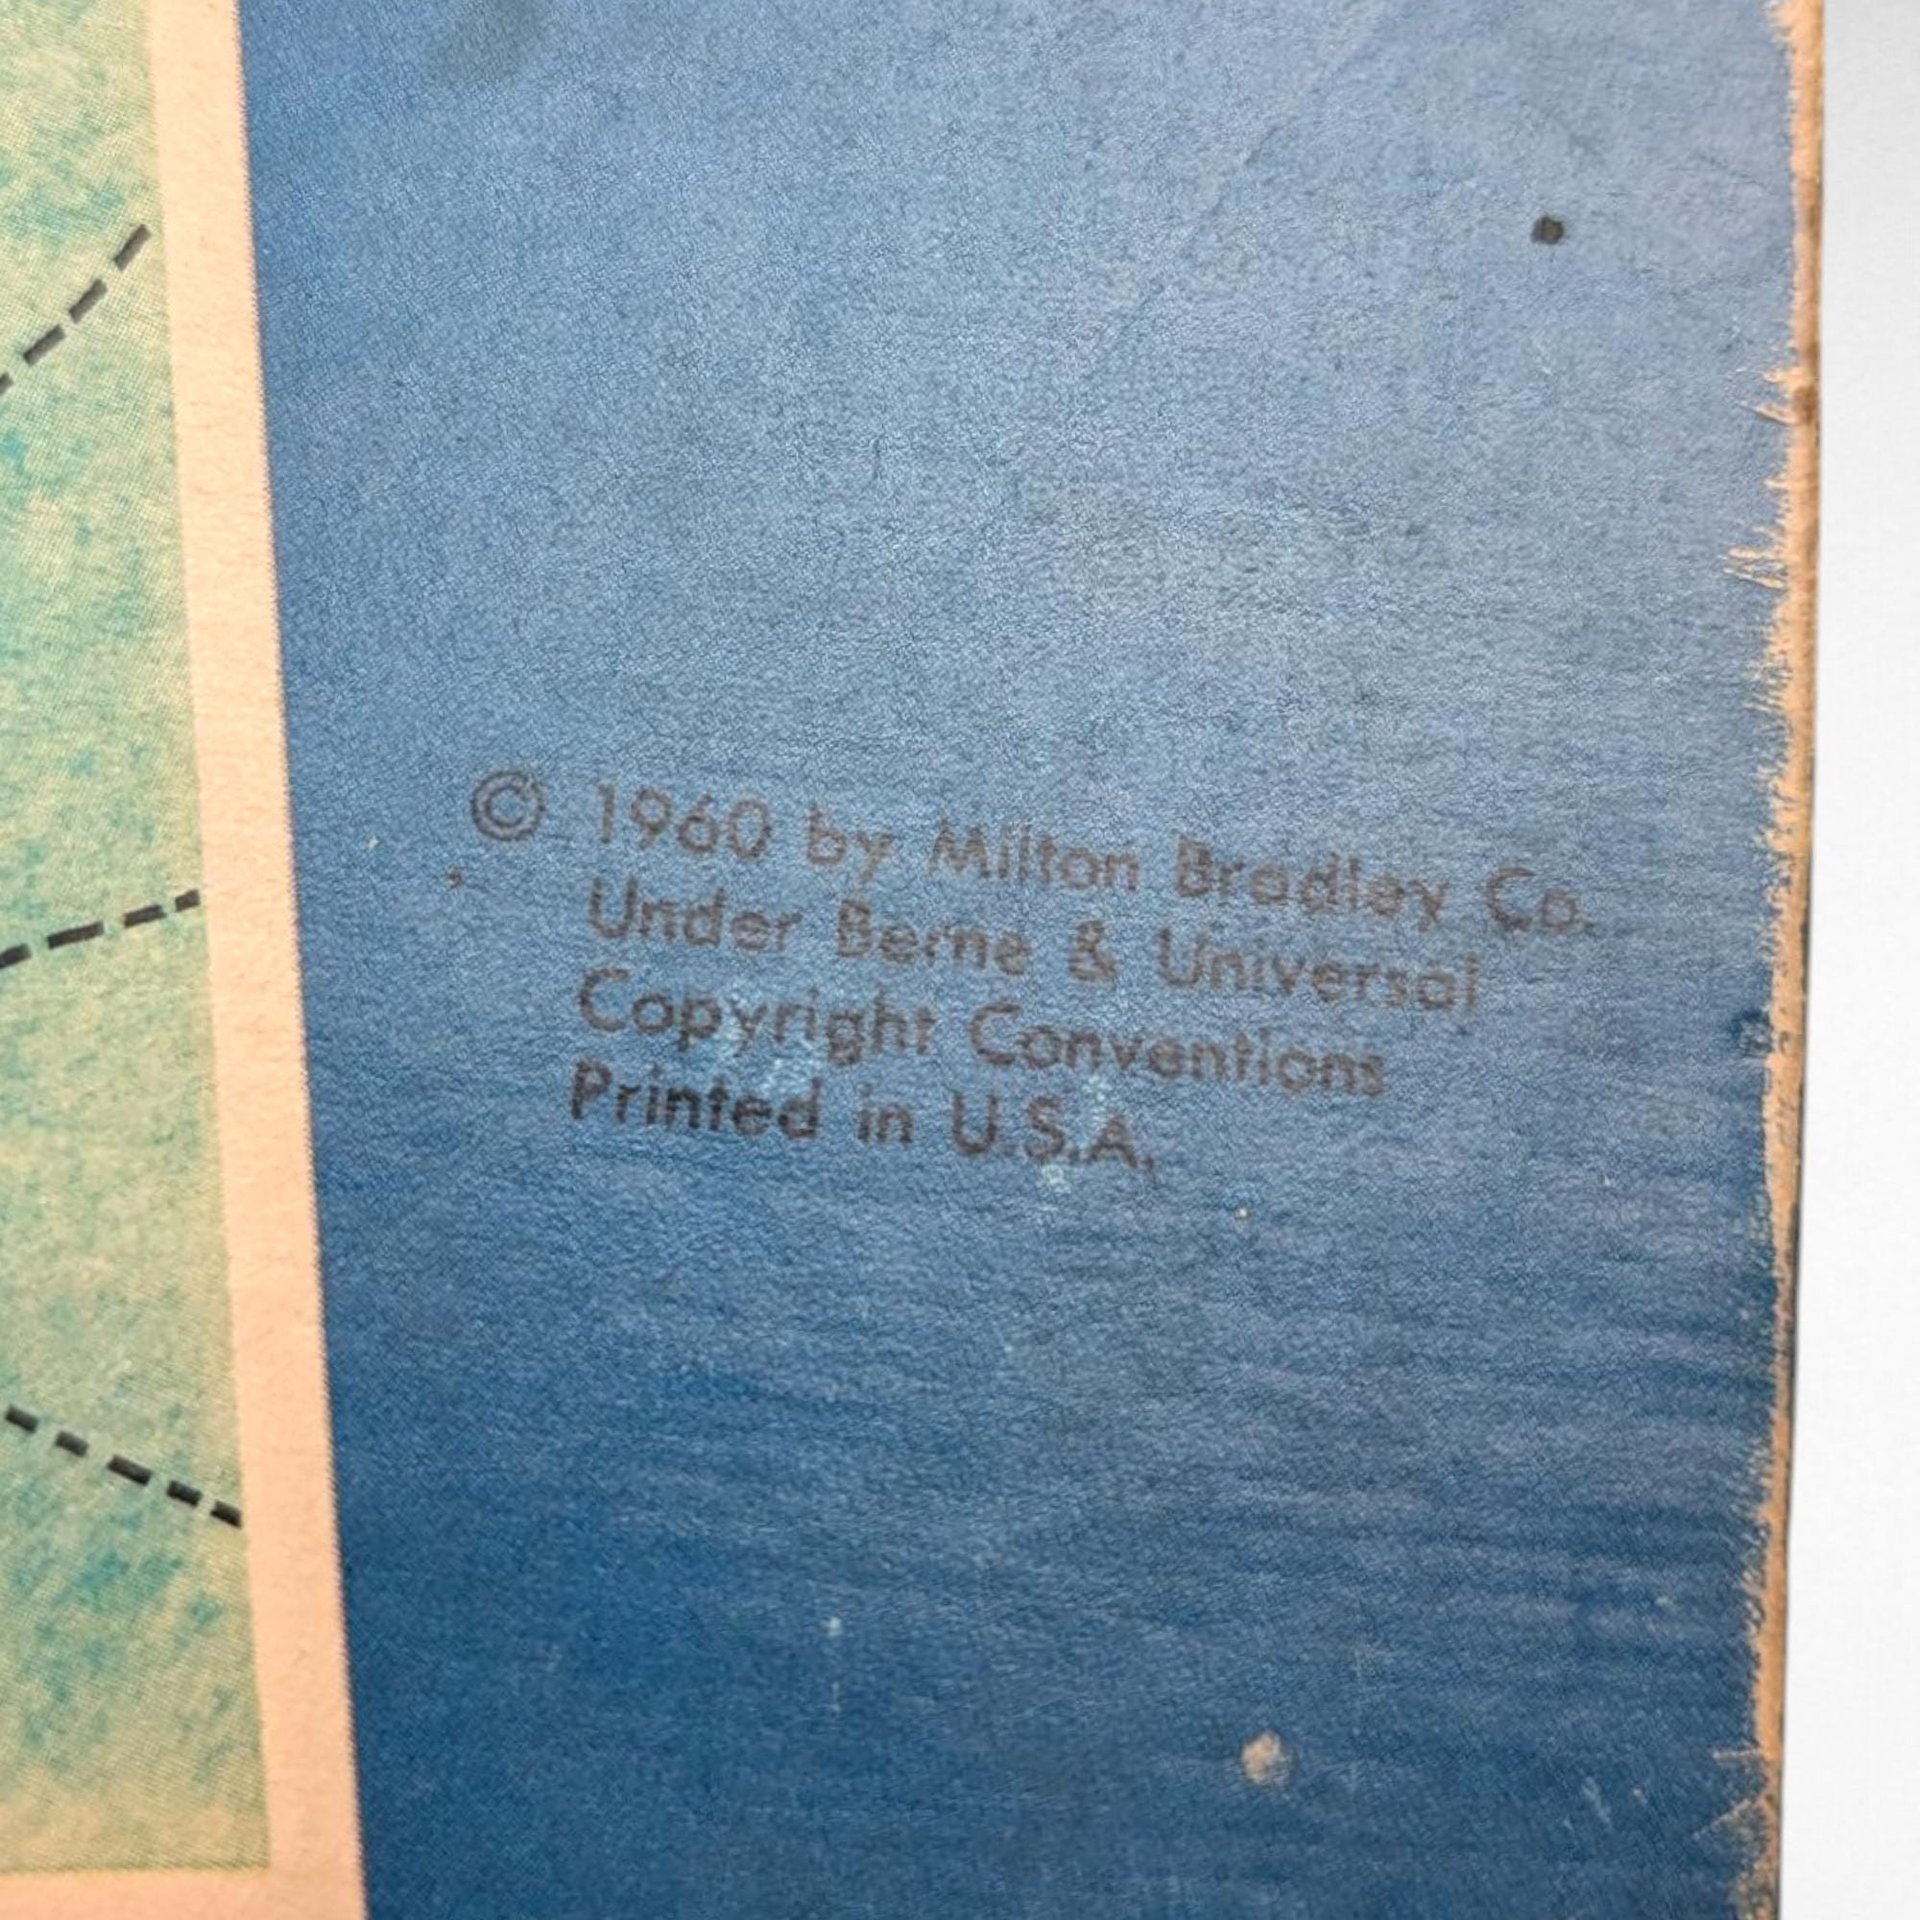 © 1960 by Milton Bradley Co.
Under Berne & Universal
Copyright Conventions
Printed in U.S.A.